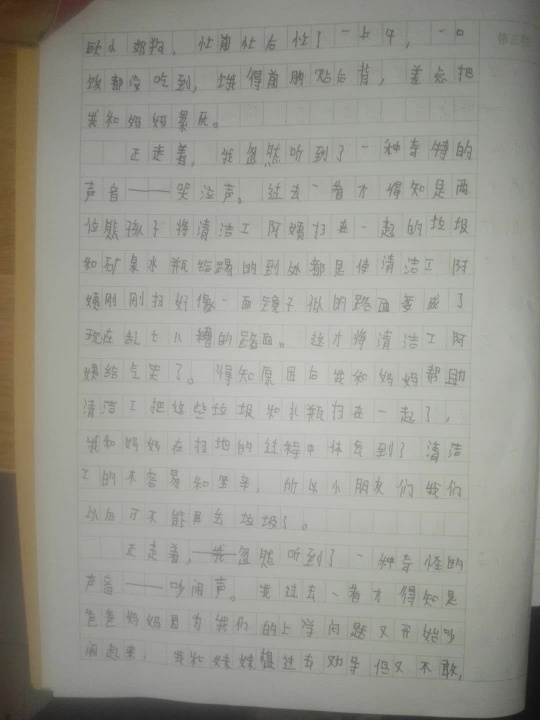 奶狗，忙前忙后忙了一上午，一口
饭都没吃到，饿得前胸贴后背，差点把
我和妈妈累死。
正走着，我忽然听到了一种奇特的
声音——哭泣声。过去一看才得知是两
位熊孩子将清洁工阿姨扫在一起的垃圾
和矿泉水瓶给踢的到处都是使清洁工阿
姨刚刚扫好像一面镜子似的路面变成了
现在乱七八糟的路面。这才将清洁工阿
姨给气哭了。得知原因后我和妈妈帮助
清洁工把这些垃圾和水瓶扫在一起了，
我和妈妈在扫地的过程中体会到了清洁
工的不容易和坚辛，所以小朋友们我们
以后可不能再丢垃圾了。
正走着，我忽然听到了一种奇怪的
声音——吵闹声。我过去一看才得知是
爸爸妈妈因为我们的上学问题又开始吵
闹起来，我和妹妹想过去劝导但又不敢，